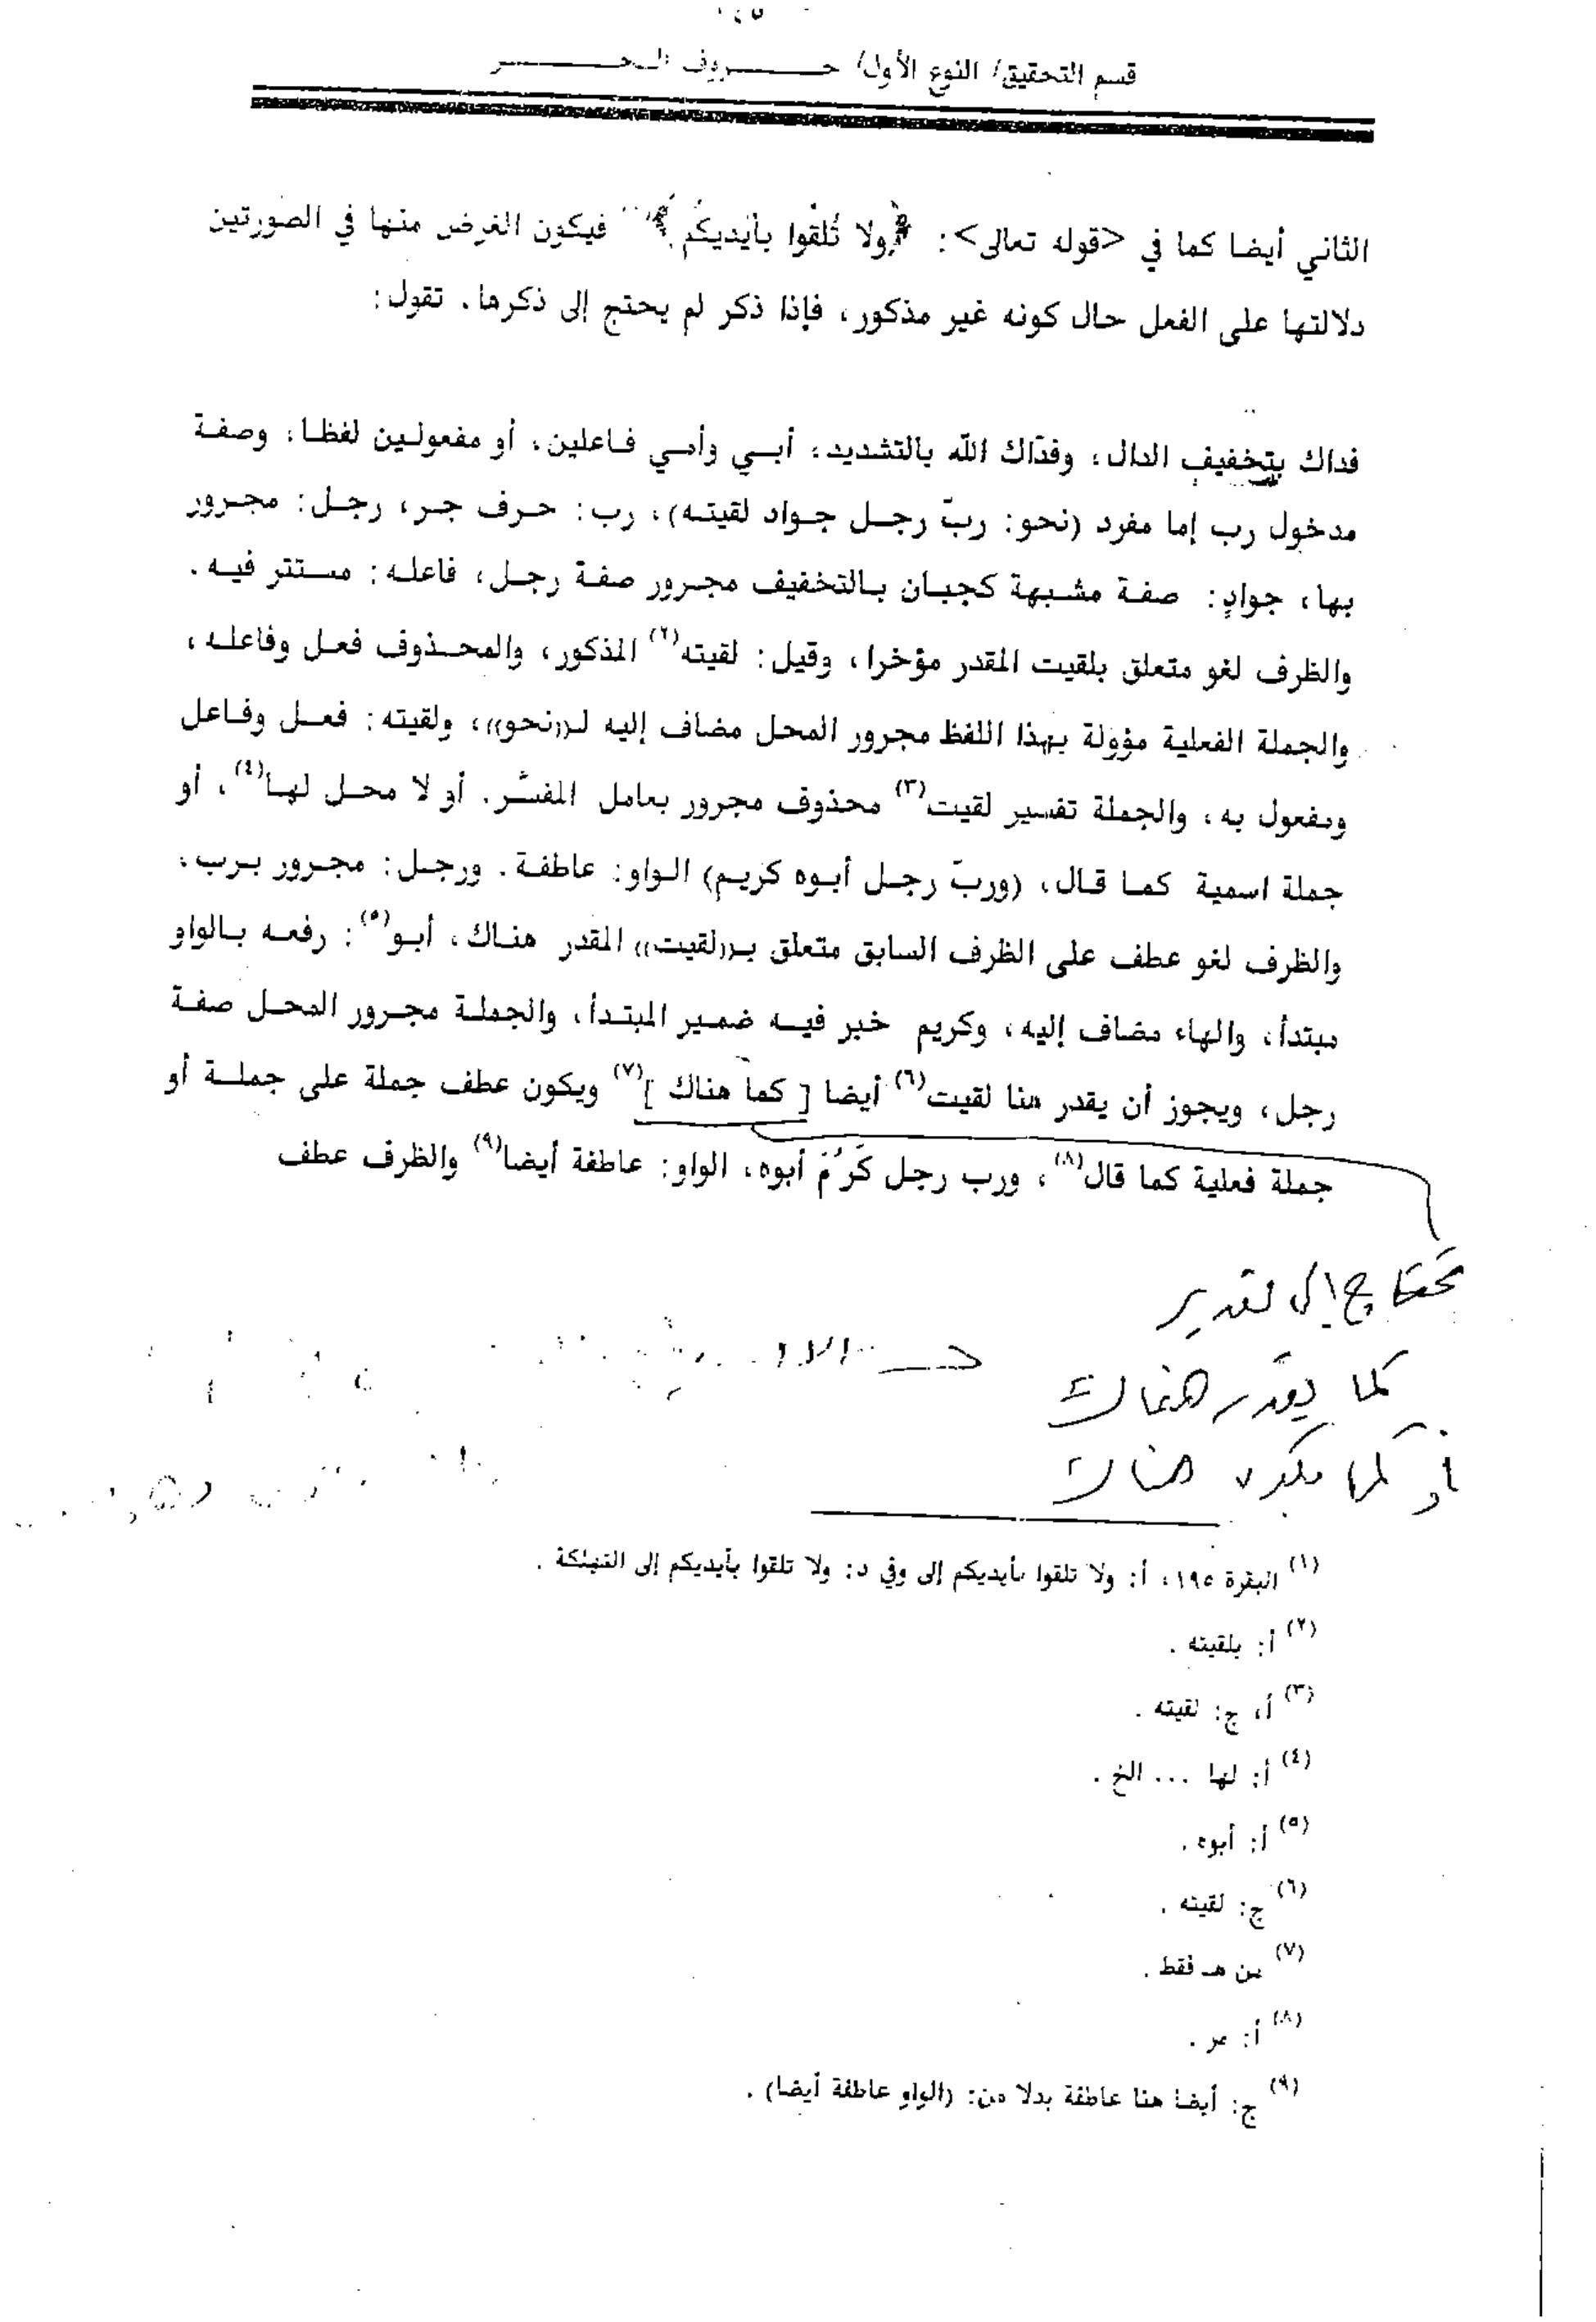 قسم التحقيق/ النوع الأول/ حـــــروف الــجــــــر
الثاني أيضا كما في <قوله تعالى>: ﴿ولا تُلقُوا بأيديكم﴾ فيكون الغرض منها في الصورتين
دلالتها على الفعل حال كونه غير مذكور، فإذا ذكر لم يحتج إلى ذكرها. تقول:
فداك بتخفيف الدال، وفدّاك الله بالتشديد، أبـي وأمـي فـاعلين، أو مفعولـين لفظـا، وصفـة
مدخول رب إما مفرد (نحو: ربّ رجـل جـواد لقيتـه)، رب: حـرف جـر، رجـل: مجـرور
بها، جوادٍ: صفـة مشـبهة كجبـان بـالتخفيف مجـرور صفـة رجـل، فاعلـه: مسـتتر فيـه.
والظرف لغو متعلق بلقيت المقدر مؤخرا، وقيل: لقيته(٢) المذكور، والمحـذوف فعـل وفاعلـه،
والجملة الفعلية مؤولة بهذا اللفظ مجرور المحل مضاف إليه لـ((نحو))، ولقيته: فعـل وفـاعل
ومفعول به، والجملة تفسير لقيت(٣) محذوف مجرور بعامل المفسَّر. أو لا محـل لهـا(٤)، أو
جملة اسمية كمـا قـال، (وربّ رجـل أبـوه كريـم) الـواو: عاطفـة. ورجـل: مجـرور بـرب،
والظرف لغو عطف على الظرف السابق متعلق بـ((لقيت)) المقدر هنـاك، أبـو(٥): رفعـه بـالواو
مبتدأ، والهاء مضاف إليه، وكريم خبر فيـه ضمـير المبتـدأ، والجملـة مجـرور المحـل صفـة
رجل، ويجوز أن يقدر هنا لقيت(٦) أيضا [ كما هناك ](٧) ويكون عطف جملة على جملـة أو
جملة فعلية كما قال(٨)، ورب رجل كَرُمَ أبوه، الواو: عاطفة أيضا(٩) والظرف عطف
تحتاج إلى تقدير
كما يقدر هناك
أو كما هناك
(١) البقرة ١٩٥، أ: ولا تلقوا بأيديكم إلى وفي د: ولا تلقوا بأيديكم إلى التهلكة .
(٢) أ: بلقيته .
(٣) أ، ج: لقيته .
(٤) أ: لها ... الخ .
(٥) أ: أبوه .
(٦) ج: لقيته .
(٧) من هـ فقط .
(٨) أ: مر .
(٩) ج: أيضا هنا عاطفة بدلا من: (الواو عاطفة أيضا) .